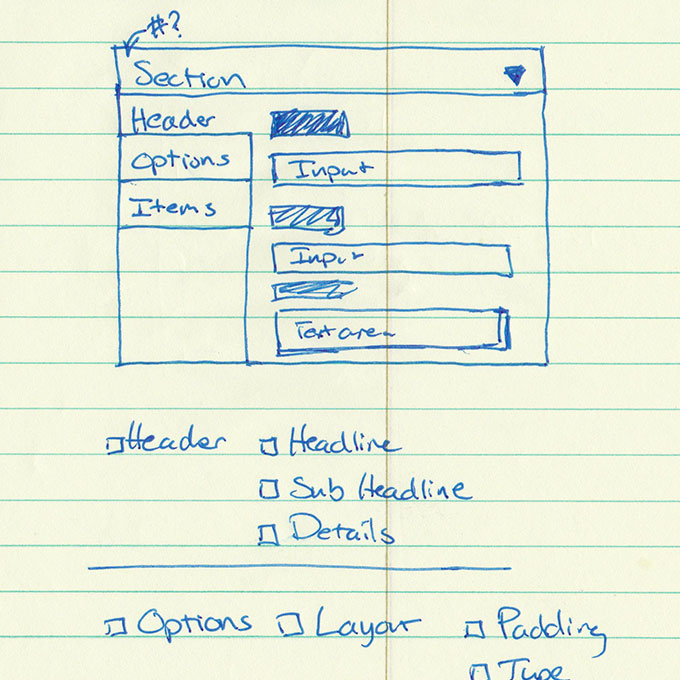 #?
Section
Header
Options
Input
Items
Input
Textarea
Header Headline
Sub Headline
Details
Options Layout Padding
Type